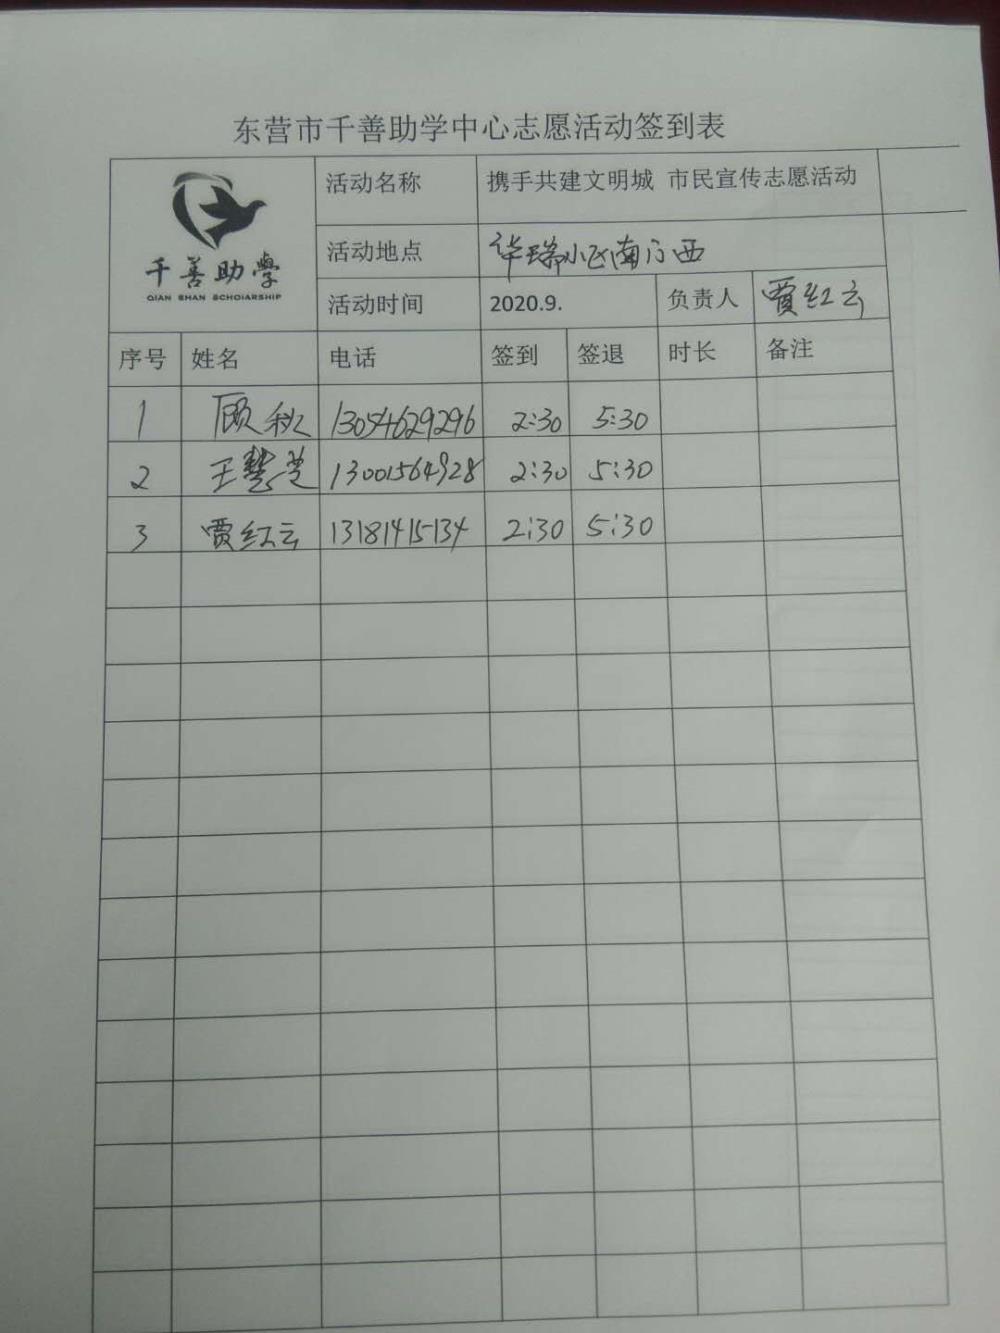 东营市千善助学中心志愿活动签到表
千善助学
QIAN SHAN SCHOLARSHIP
活动名称 携手共建文明城 市民宣传志愿活动
活动地点 华瑞小区南门西
活动时间 2020.9. 负责人 贾红云
序号 姓名 电话 签到 签退 时长 备注
1 顾秋 13054629296 2:30 5:30
2 王慧芝 13001564928 2:30 5:30
3 贾红云 13181415134 2:30 5:30